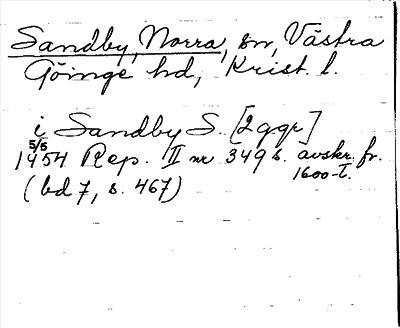 Sandby, Norra, sn, Västra
Göinge hd, Krist. l.
i Sandby S. [2 ggr]
5/5
1454 Rep. II nr 349 s. avskr. fr.
1600-t.
(bd 7, s. 467)